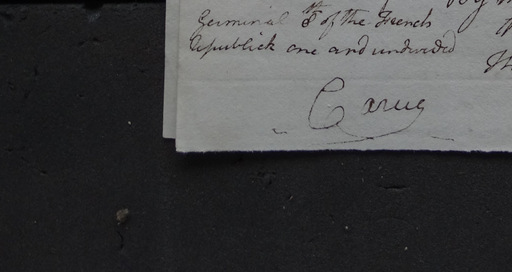 Germinal 5th of the French
Republick one and undivided
Carug